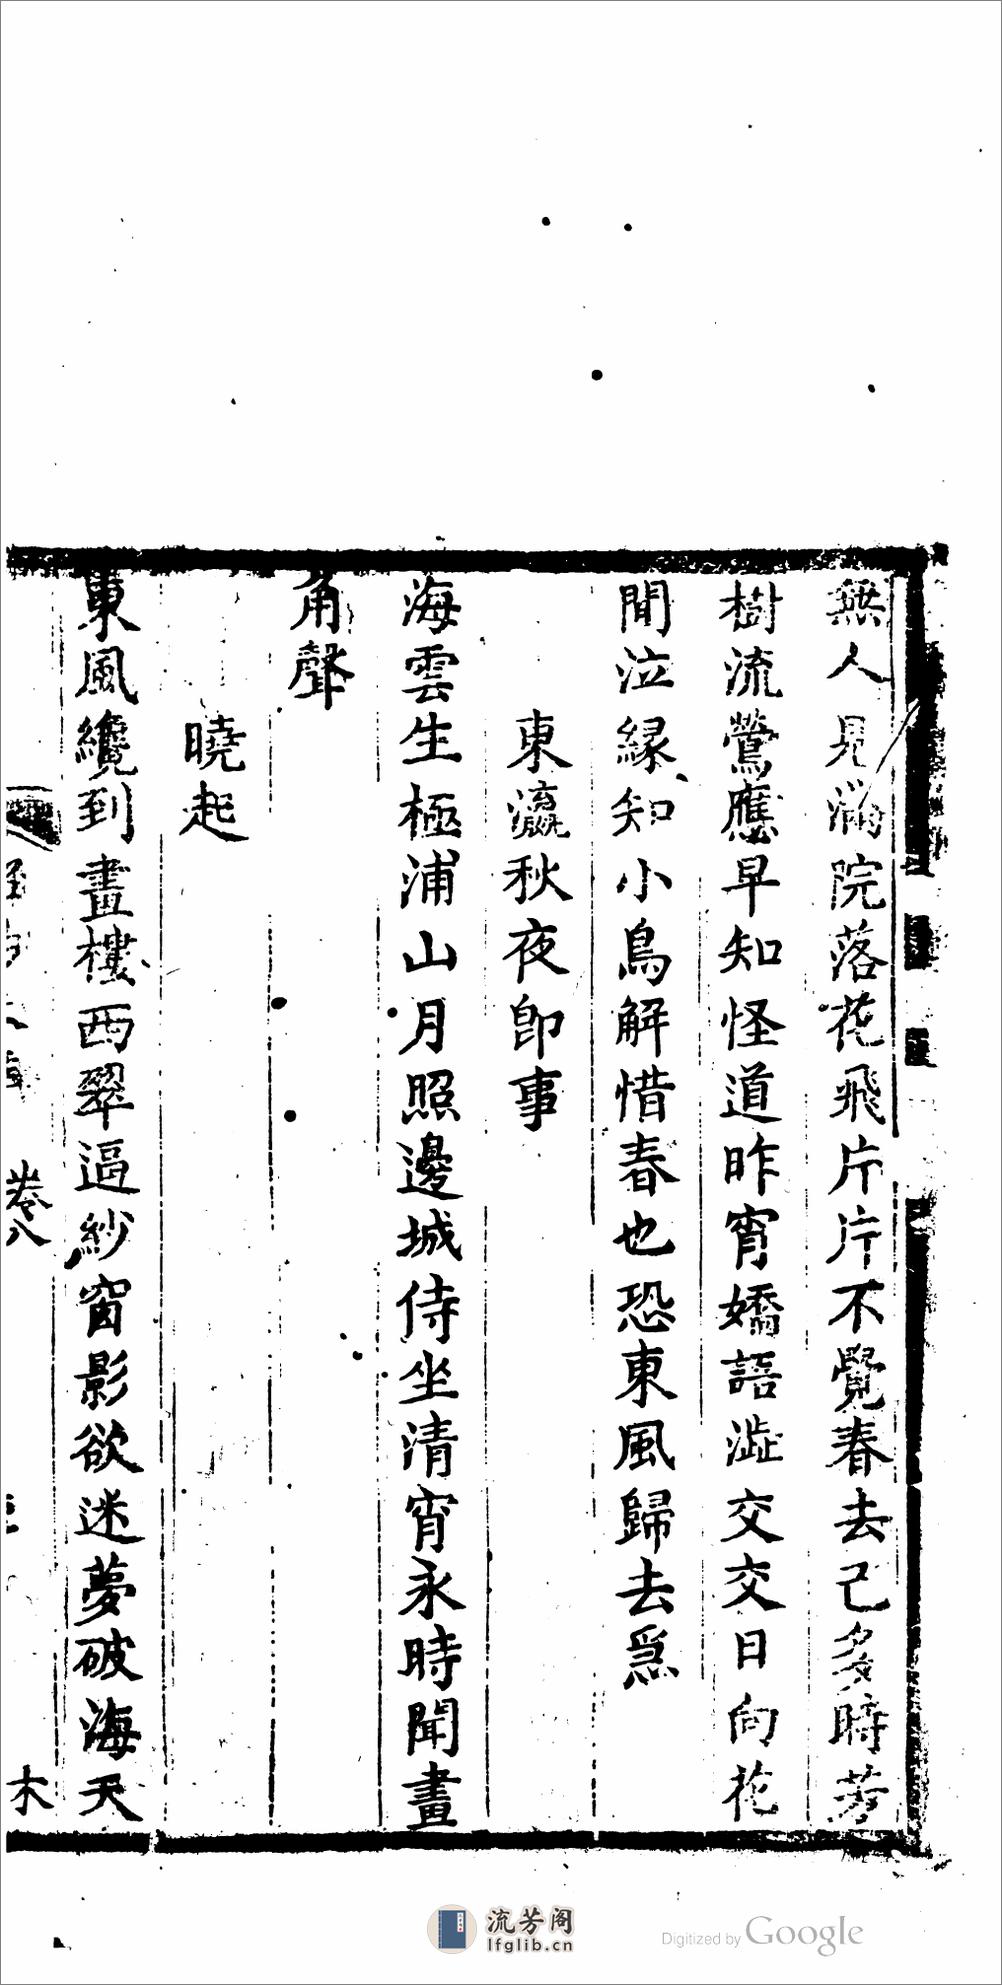 無人見滿院落花飛片片不覺春去已多時芳
樹流鶯應早知怪道昨宵嬌語澁交交日向花
閒泣緣知小鳥解惜春也恐東風歸去爲
東瀛秋夜卽事
海雲生極浦山月照邊城侍坐清宵永時聞畫
角聲
曉起
東風纔到畫樓西翠逼紗窗影欲迷夢破海天
卷八
木
流芳阁
lfglib.cn
Digitized by Google